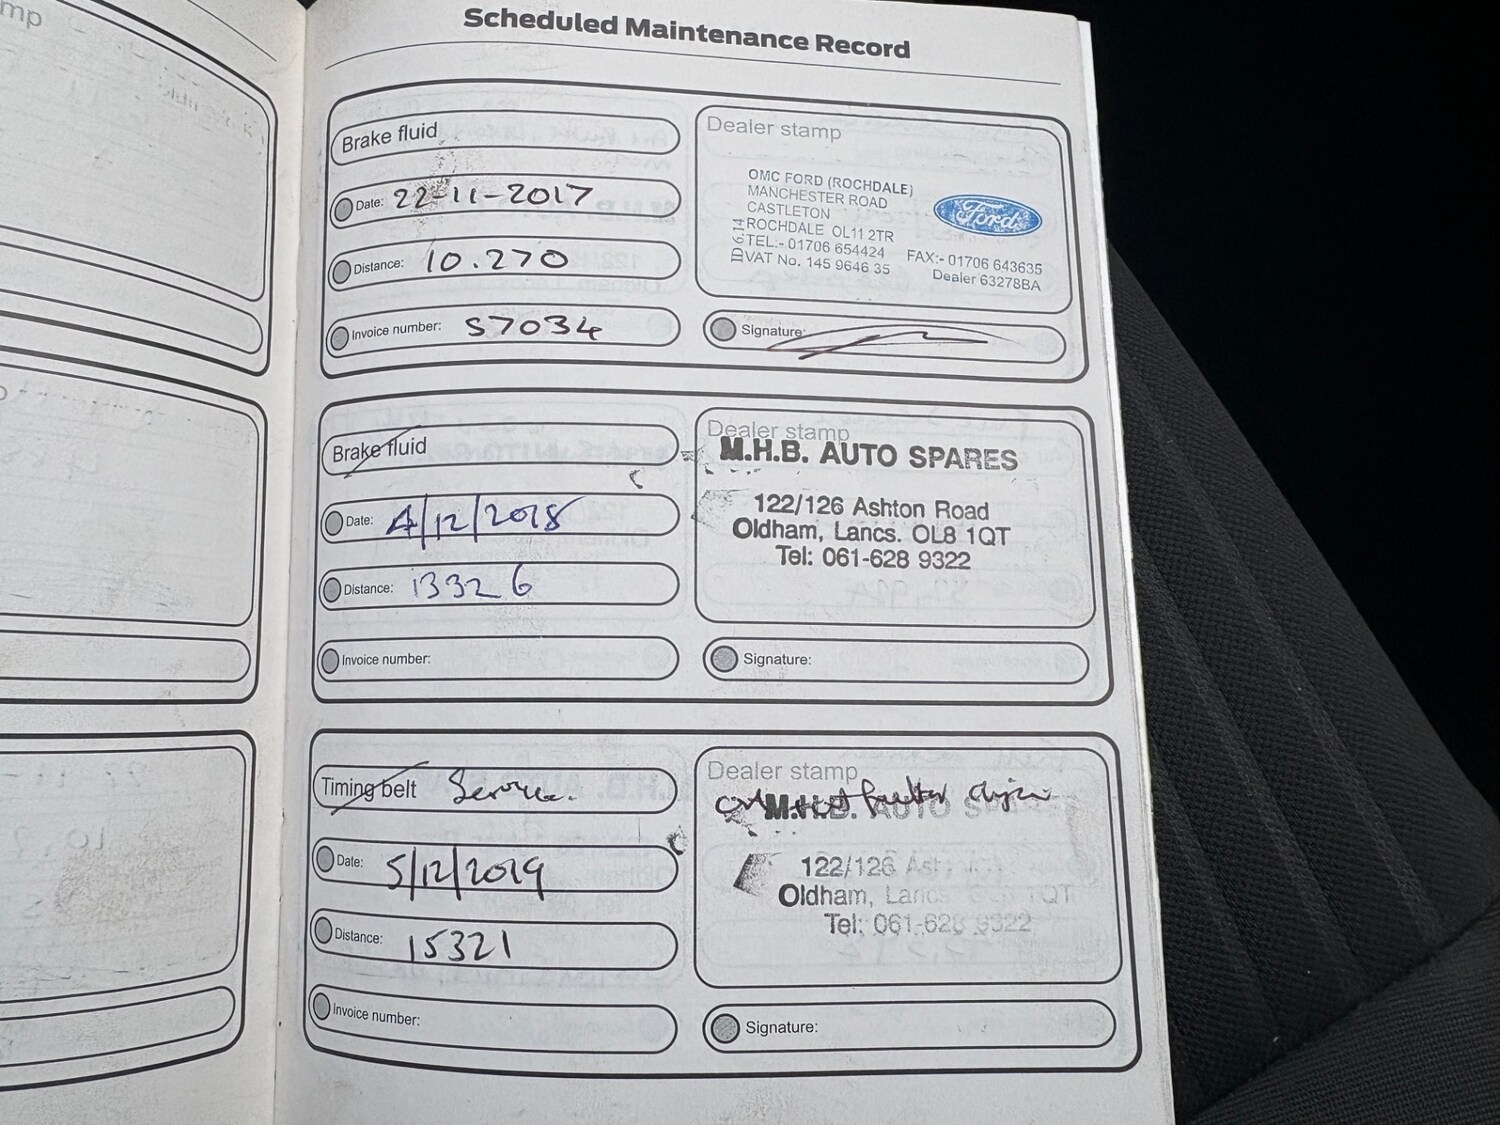 mp
Scheduled Maintenance Record
Brake fluid
Date: 22-11-2017
Distance: 10.270
Invoice number: S7034
Dealer stamp
OMC FORD (ROCHDALE)
MANCHESTER ROAD
CASTLETON
ROCHDALE OL11 2TR
TEL:- 01706 654424 FAX:- 01706 643635
VAT No. 145 9646 35 Dealer 63278BA
Ford
Signature:
Brake fluid
Date: 4/12/2018
Distance: 13326
Invoice number:
Dealer stamp
M.H.B. AUTO SPARES
122/126 Ashton Road
Oldham, Lancs. OL8 1QT
Tel: 061-628 9322
Signature:
Timing belt Service.
Date: 5/12/2019
Distance: 15321
Invoice number:
Dealer stamp
M.H.B. AUTO SPARES
122/126 Ash
Oldham, Lancs 1QT
Tel: 061-628 9322
Signature: